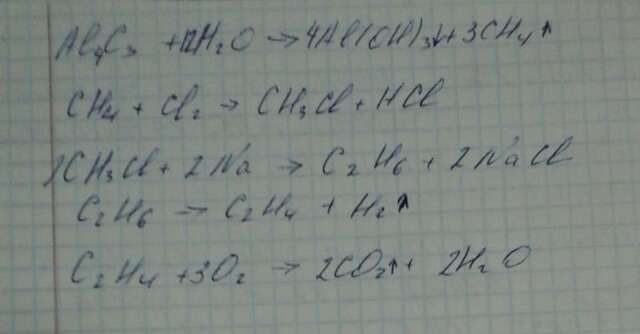 Al₄C₃ + 12H₂O → 4Al(OH)₃↓ + 3CH₄↑
CH₄ + Cl₂ → CH₃Cl + HCl
2CH₃Cl + 2Na → C₂H₆ + 2NaCl
C₂H₆ → C₂H₄ + H₂↑
C₂H₄ + 3O₂ → 2CO₂↑ + 2H₂O